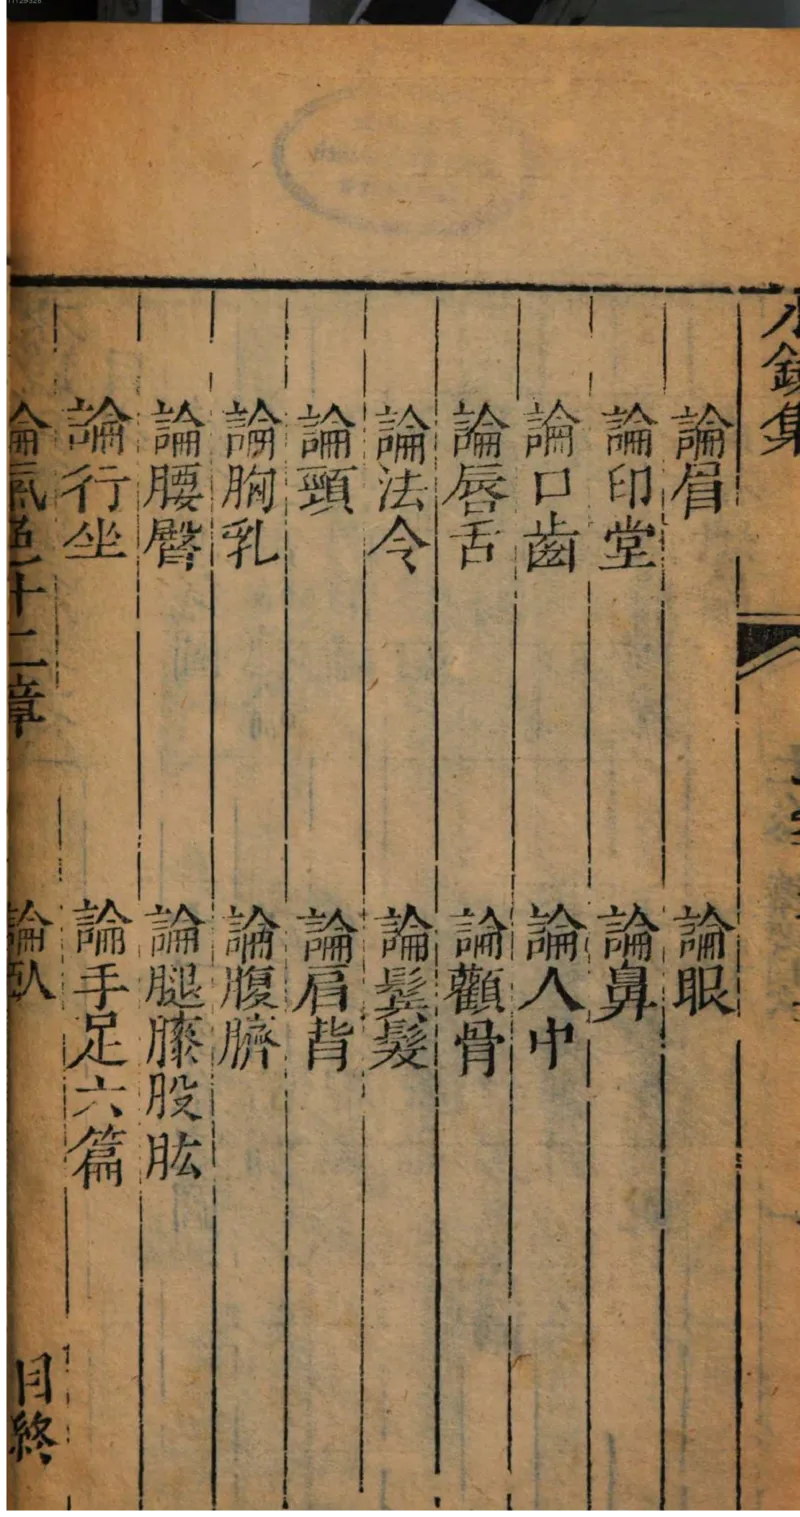 論眉 論眼
論印堂 論鼻
論口齒 論人中
論唇舌 論顴骨
論法令 論鬂髮
論頸 論肩背
論胸乳 論腹臍
論腰臀 論腿膝股肱
論行坐 論手足六篇
論氣色十二章 論臥 目終